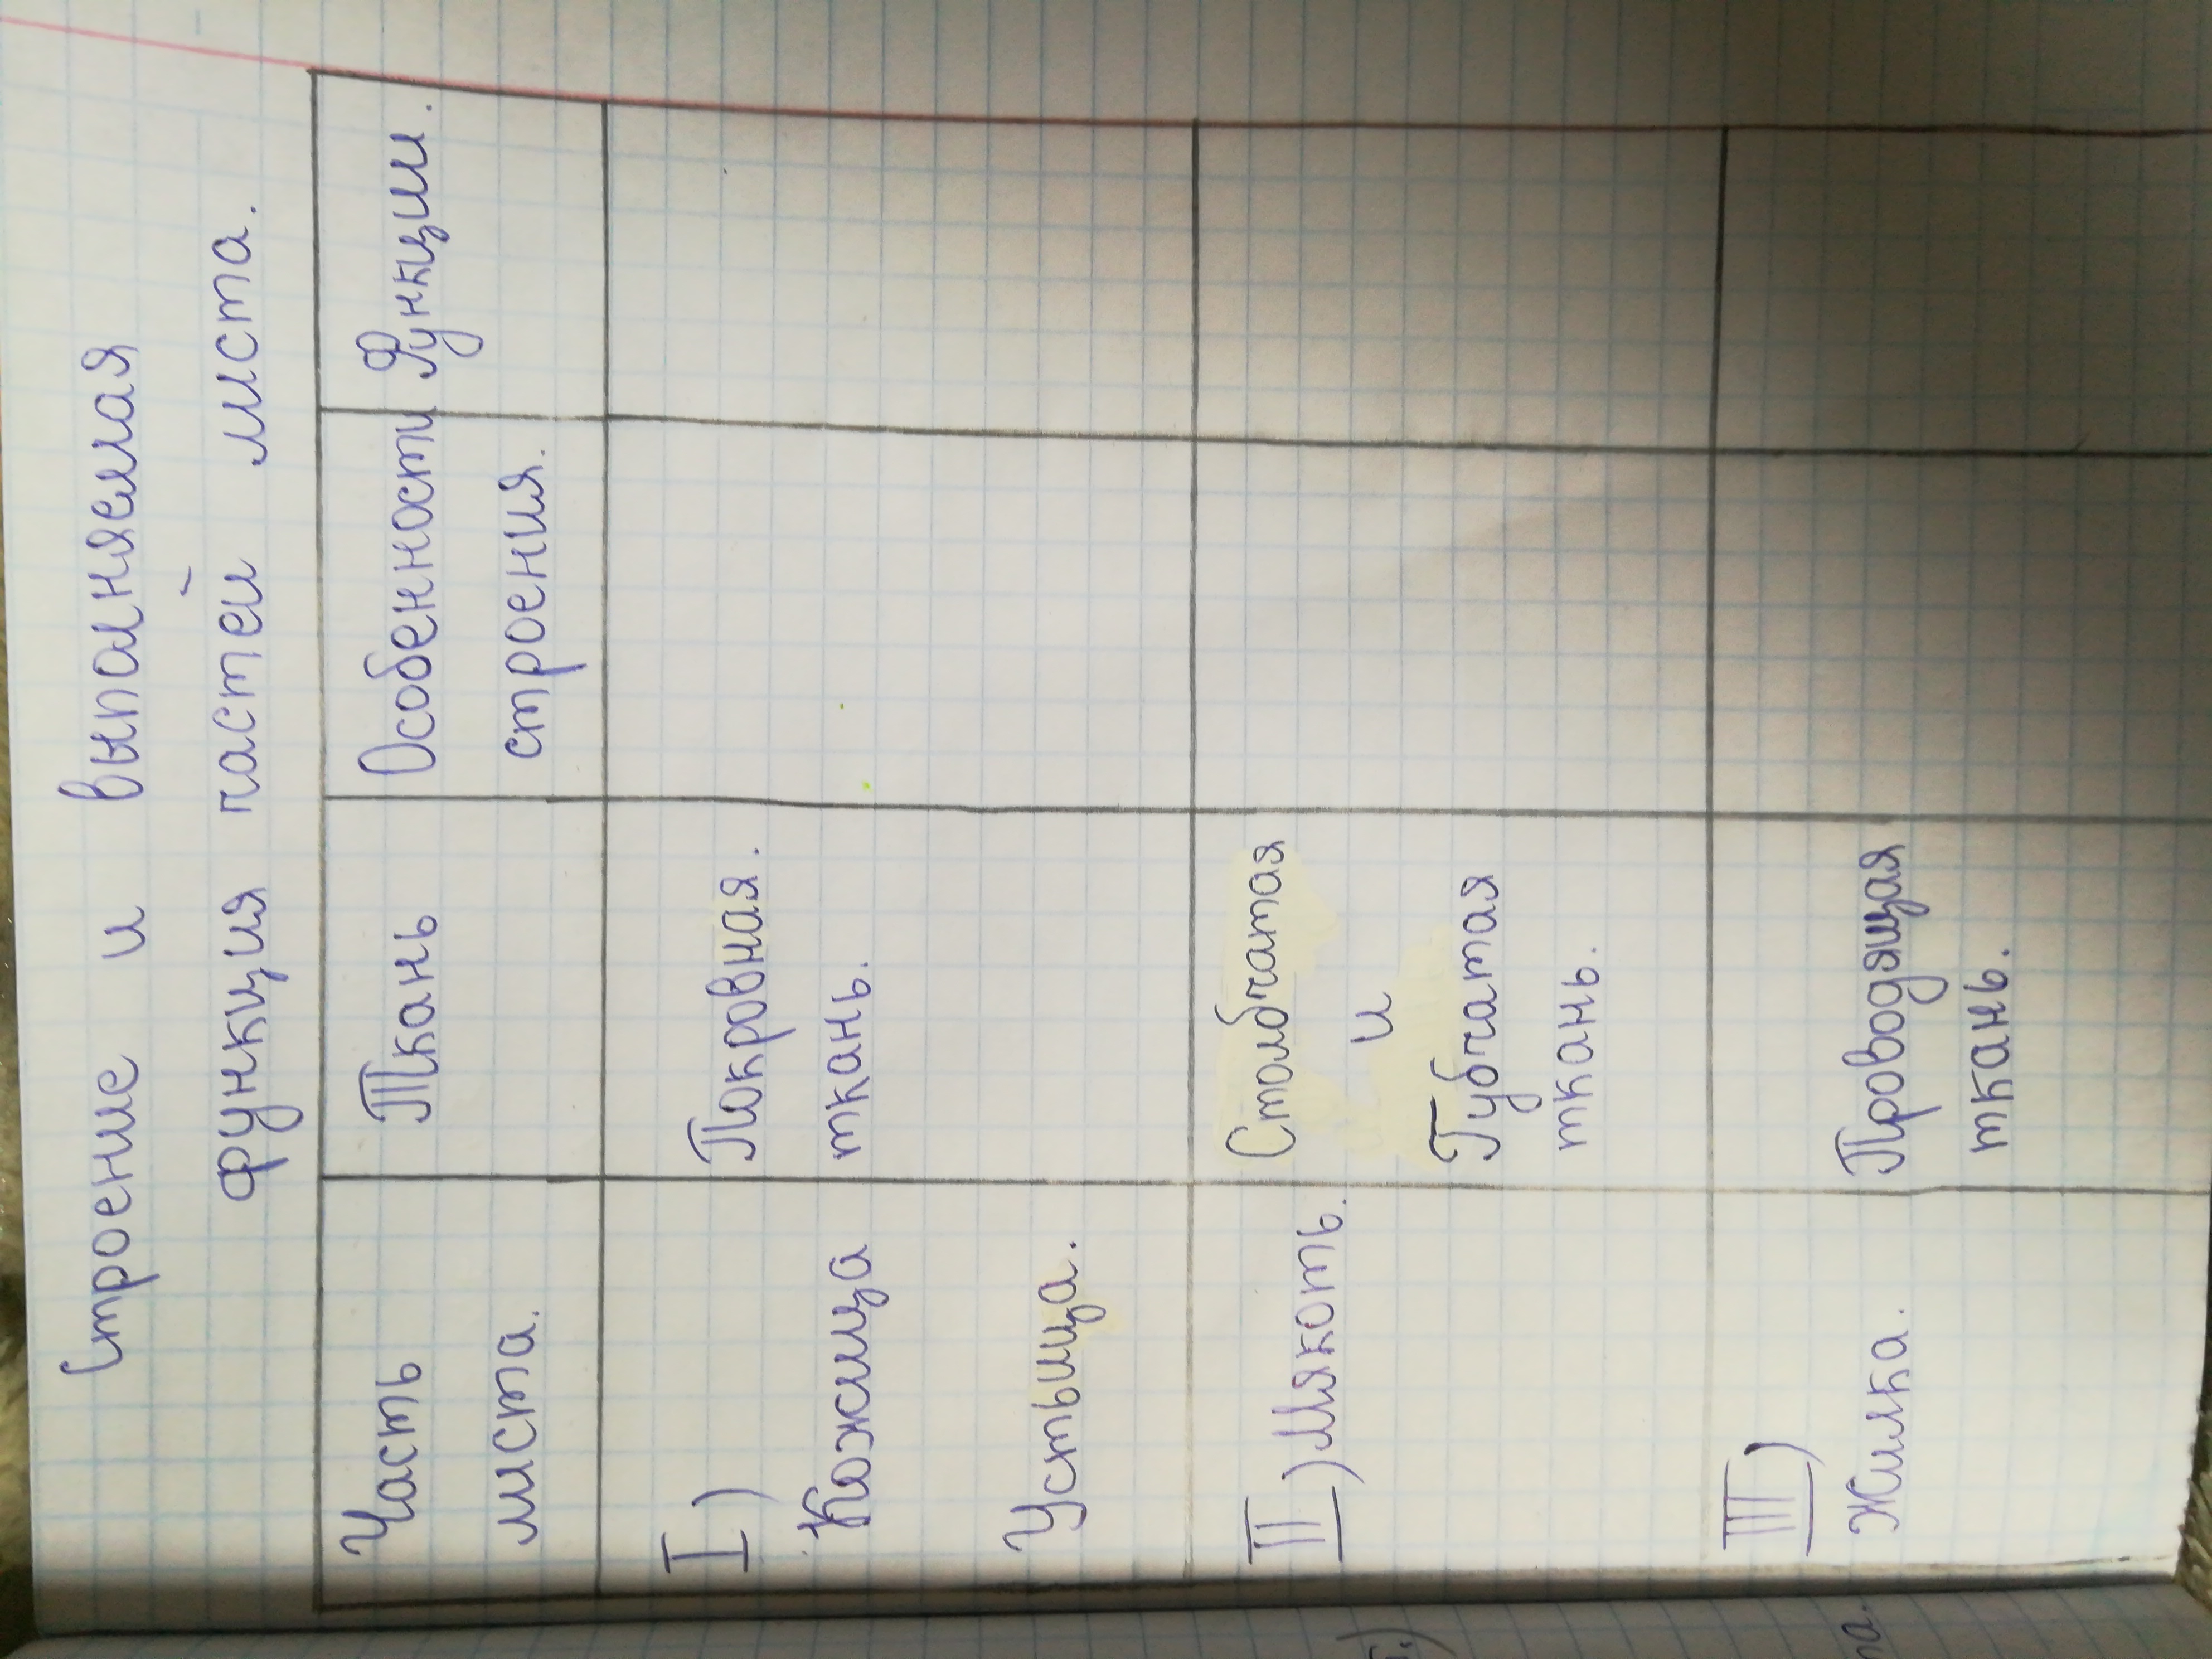 Строение и выполняемая
функция частей листа.
Часть
листа.
Ткань
Особенности
строения.
Функции.
I)
Кожица
Устьица.
Покровная.
ткань.
II) Мякоть.
Столбчатая
и
Губчатая
ткань.
III)
Жилка.
Проводящая
ткань.